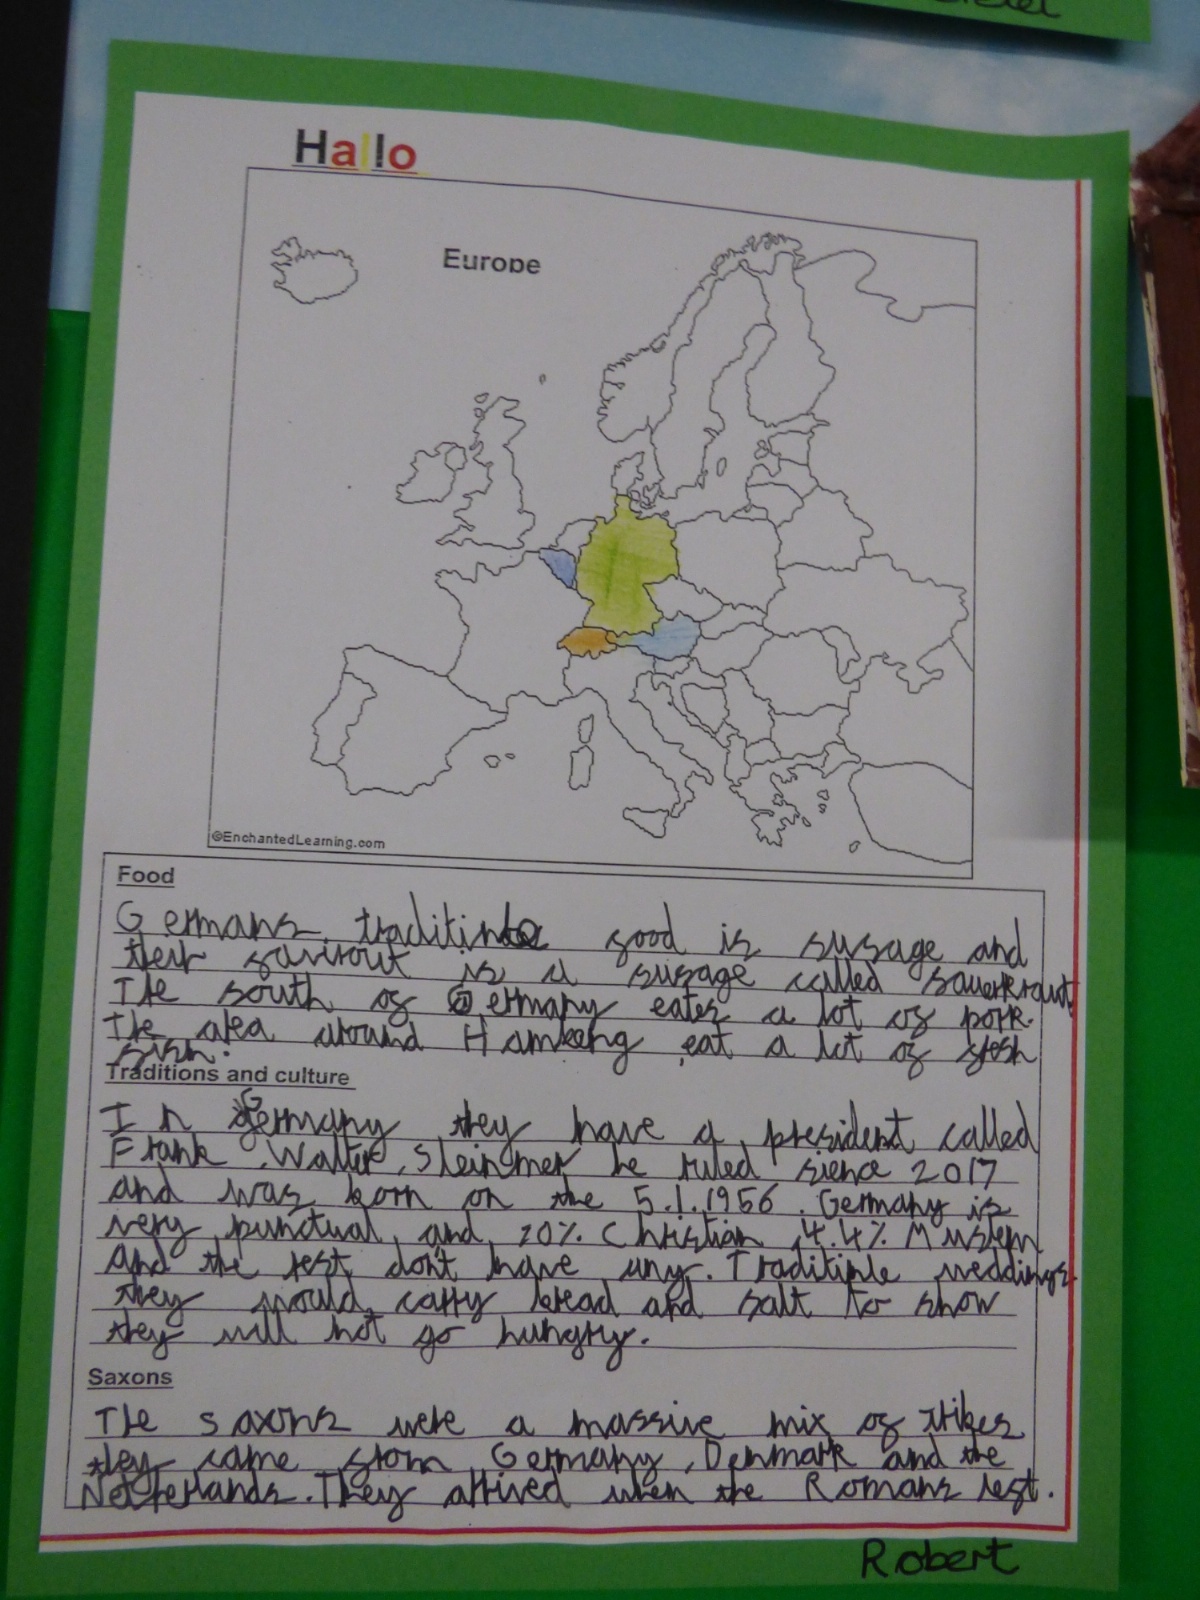 Hallo
Europe
©EnchantedLearning.com
Food
Germans traditinle food is susage and
their favirout is a susage called sauerkraut,
The south of Germany eates a lot of pork.
The area around Hamburg eat a lot of fresh
fish.
Traditions and culture
In Germany they have a president called
Frank, Walter, Steinmer he ruled sience 2017
and was born on the 5.1.1956. Germany is
very punctual, and 70% Christian, 4.4% Muslem
and the rest don't have any. Traditinle weddings
they would carry bread and salt to show
they will not go hungry.
Saxons
The saxons were a massive mix of tribes
they came from Germany, Denmark and the
Netherlands. They arrived when the Romans left.
Robert